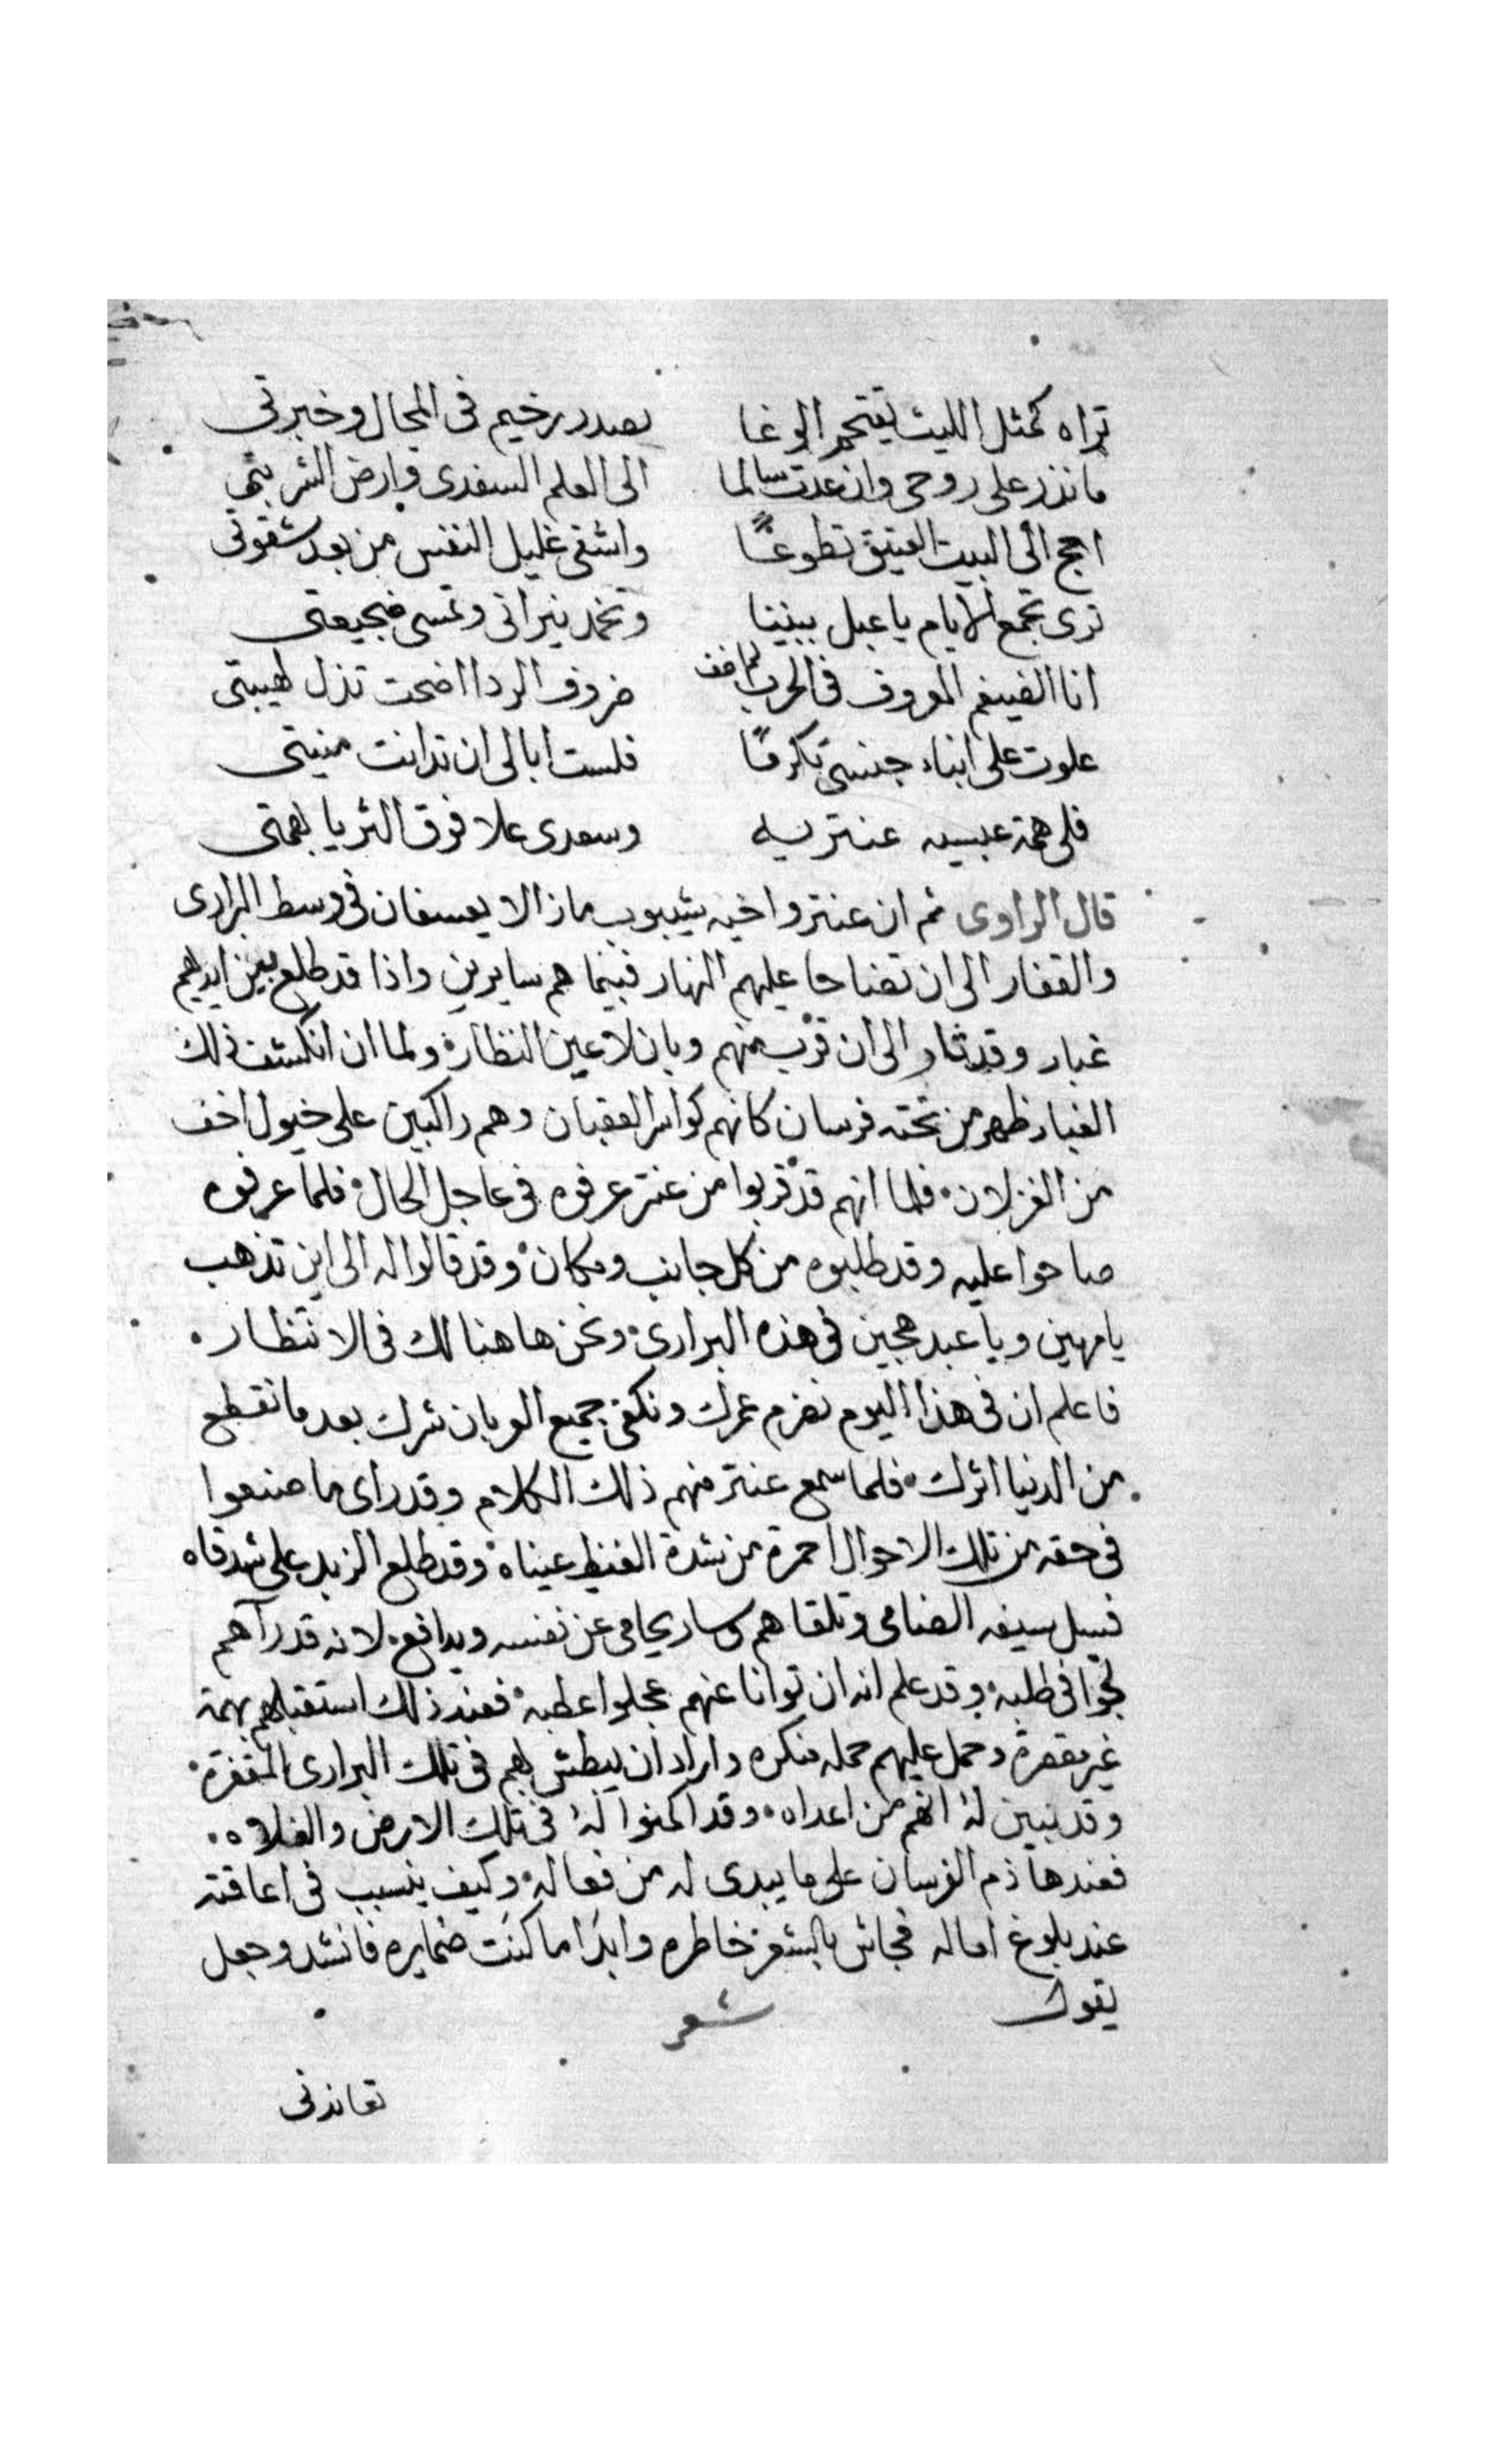 تراه كمثل الليث يقتحم الوغا بصدر رخيم فى المجال وخبرتى
مانذر على روحى وان عدت سالما الى العلم السعدى وارض الشربتى
احج الى البيت العتيق تطوعًا واشفى غليل النفس من بعد شقوتى
ترى تجمع الايام يا عبل بيننا وتخمد نيرانى وتمسى ضجيعتى
انا الضيغم المعروف فى الحرب لم اخف ضروف الردا اضحت تذل لهيبتى
علوت على ابناء جنسى تكرمًا فلست ابالى ان تدانت منيتى
فلى همة عبسيه عنتريه وسعدى علا فوق الثريا بهمتى
قال الراوى ثم ان عنتر واخيه شيبوب مازالا يعسفان فى وسط البرارى
والقفار الى ان تضاحا عليهم النهار فبينما هم سايرين واذا قد طلع بين ايديهم
غبار وقد ثار الى ان قرب منهم وبان لاعين النظارة ولما ان انكشف ذلك
الغبار ظهر من تحته فرسان كانهم كواسر العقبان وهم راكبين على خيول اخف
من الغزلان فلما انهم قد قربوا من عنتر عرفوه فى عاجل الحال فلما عرفوه
صاحوا عليه وقد طلبوه من كل جانب ومكان وقد قالوا له الى اين تذهب
يا مهين ويا عبد هجين فى هذه البرارى ونحن هاهنا لك فى الانتظار
فاعلم ان فى هذا اليوم نصرم عمرك ونكفى جميع العربان شرك بعد ما نقطع
من الدنيا اثرك فلما سمع عنتر منهم ذلك الكلام وقد راى ما صنعوا
فى حقه من تلك الاحوال احمرة من شدة الغيظ عيناه وقد طلع الزبد على شدقاه
فسل سيفه الضامى وتلقاهم وسار يحامى عن نفسه ويدافع لانه قد رآهم
لجّوا فى طلبه وقد علم انه ان توانا عنهم عجلوا عطبه فعند ذلك استقبلهم بهمة
غير مقصرة وحمل عليهم حمله منكره واراد ان يبطش بهم فى تلك البرارى المقفرة
وقد تبين له انهم من اعداه وقد اكمنوا له فى تلك الارض والفلاه
فعندها ذم الفرسان على ما يبدى له من فعاله وكيف يتسبب فى اعاقته
عند بلوغ اماله فجاش بالشعر خاطره وابدا ما كنت ضمايره فانشد وجعل
يقول شعر
تعاندنى